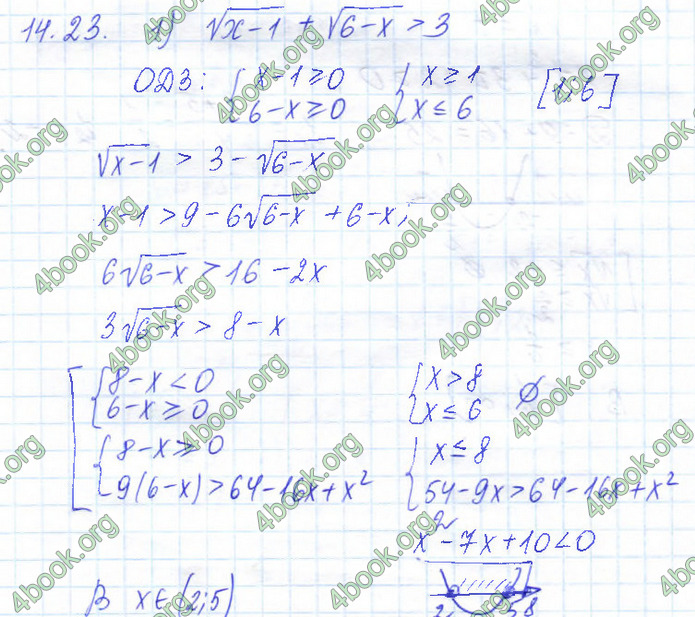 14.23. 1) √x-1 + √6-x > 3
ОДЗ: { x-1 ≥ 0 { x ≥ 1 [1;6]
6-x ≥ 0 x ≤ 6
√x-1 > 3 - √6-x
x-1 > 9 - 6√6-x + 6-x;
6√6-x > 16 - 2x
3√6-x > 8 - x
[ { 8-x < 0 { x > 8 ∅
6-x ≥ 0 x ≤ 6
{ 8-x ≥ 0 { x ≤ 8
9(6-x) > 64-16x+x² 54-9x > 64-16x+x²
x²-7x+10 < 0
2 5 8
В x ∈ (2;5)
4book.org